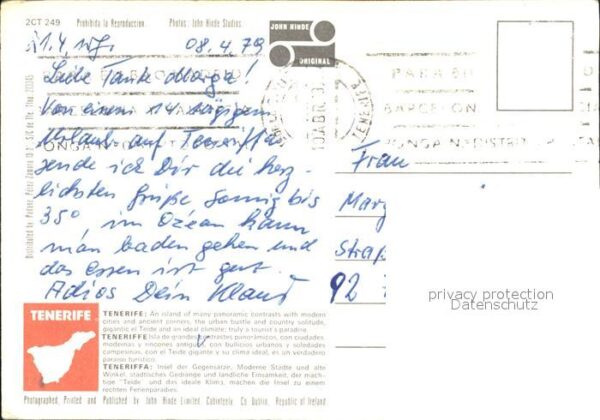 2CT 249 Prohibida la Reproduccion. Photos: John Hinde Studios.
JOHN HINDE
ORIGINAL
08.4.79
Liebe Tante Marga!
Von einem 14 tägigem
Urlaub auf Teneriffa
sende ich Dir die herz-
lichsten Grüße. Sonnig bis
35°, im Ozean kann
man baden gehen und
das Essen ist gut.
Adios Dein Klaus
PARA SU
BARCELON
PONGA Nº DISTRI
10 ABR.
TENERIFE
Frau
Marg
Straß
92
privacy protection
Datenschutz
TENERIFE
TENERIFE: An island of many panoramic contrasts with modern
cities and ancient corners, the urban bustle and country solitude,
gigantic el Teide and an ideal climate; truly a tourist's paradise.
TENERIFE Isla de grandes contrastes panorámicos, con ciudades
modernas y rincones antiguos, con bullicios urbanos y soledades
campesinas, con el Teide gigante y su clima ideal, es un verdadero
paraiso turistico.
TENERIFFA: Insel der Gegensätze, Moderne Städte und alte
Winkel, städtisches Gedränge und ländliche Einsamkeit, der mäch-
tige "Teide" und das ideale Klima, machen die Insel zu einem
rechten Ferienparadies.
Photographed, Printed and Published by John Hinde Limited, Cabinteely, Co Dublin, Republic of Ireland